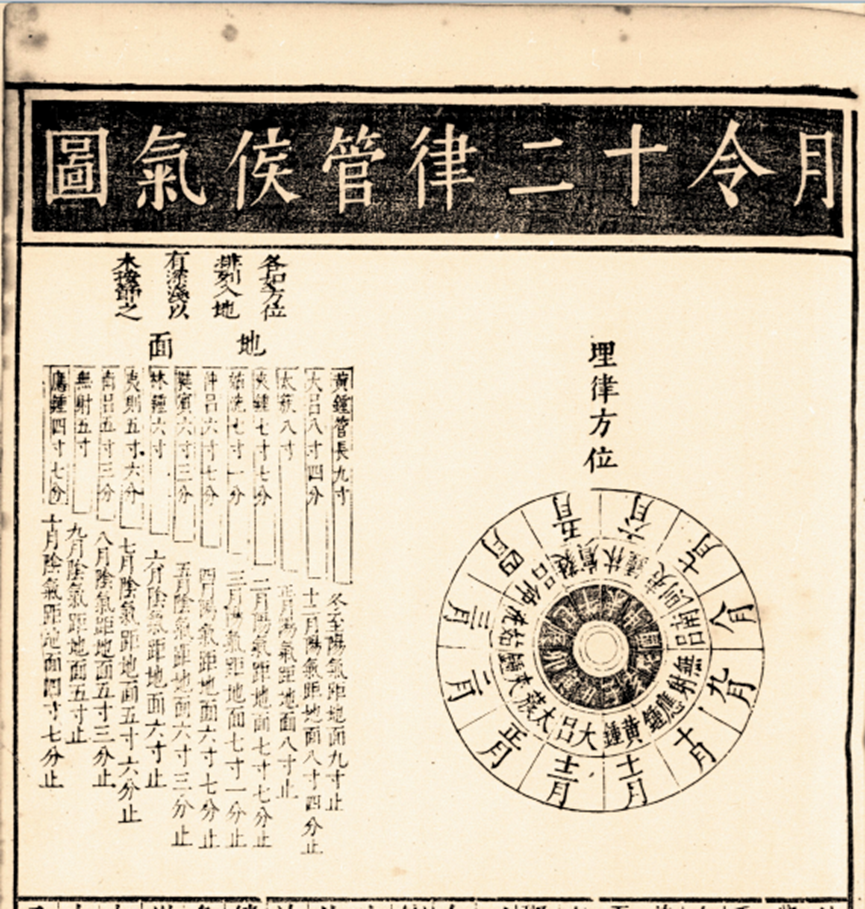 月令十二律管侯氣圖
埋律方位
六月
七月
八月
九月
十月
十一月
十二月
正月
二月
三月
四月
五月
林鍾
夷則
南呂
無射
應鍾
黃鍾
大呂
太蔟
夾鍾
姑洗
仲呂
蕤賓
各如方位
排列入地
有深淺以
木按節之
地面
黃鍾管長九寸
冬至陽氣距地面九寸止
大呂八寸四分
十二月陽氣距地面八寸四分止
太蔟八寸
正月陽氣距地面八寸止
夾鍾七寸七分
二月陽氣距地面七寸七分止
姑洗七寸一分
三月陽氣距地面七寸一分止
仲呂六寸七分
四月陽氣距地面六寸七分止
蕤賓六寸三分
五月陰氣距地面六寸三分止
林鍾六寸
六月陰氣距地面六寸止
夷則五寸六分
七月陰氣距地面五寸六分止
南呂五寸三分
八月陰氣距地面五寸三分止
無射五寸
九月陰氣距地面五寸止
應鍾四寸七分
十月陰氣距地面四寸七分止